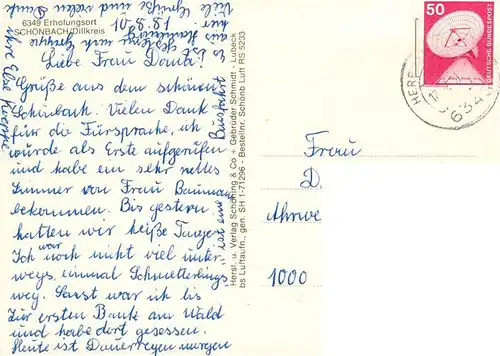 6349 Erholungsort
SCHÖNBACH/Dillkreis
Liebe Frau Danà!
Grüße aus dem schönen
Schönbach. Vielen Dank
für die Fürsprache, ich
wurde als Erste aufgerufen
und habe ein sehr nettes
Zimmer von Frau Baumann
bekommen. Bis gestern
hatten wir heiße Tage.
Ich war noch nicht viel unter-
wegs, einmal Schmetterlings
weg. Sonst war ich bis
zur ersten Bank am Wald
und habe dort gesessen.
Heute ist Dauerregen morgen
ist eine Busfahrt
Viele Grüße und vielen Dank
Ihre Else
Herst. u. Verlag Schöning & Co + Gebrüder Schmidt - Lübeck
bs Luftaufn., gen. SH 1-71296 - Bestellnr. Schönb Luft RS 5233
50
DEUTSCHE BUNDESPOST
HER
634
Frau
D.
1000